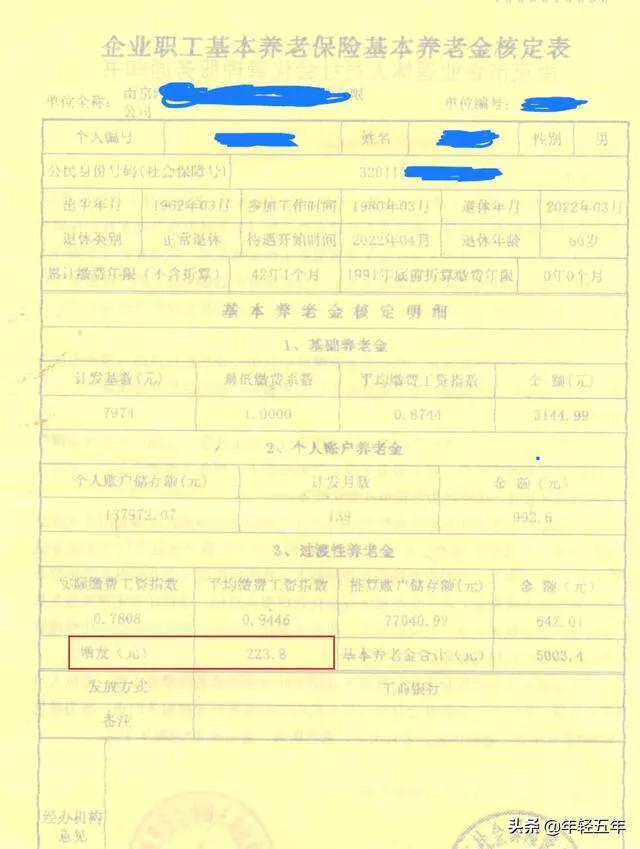 企业职工基本养老保险基本养老金核定表
单位全称： 南京 限公司 单位编号：
个人编号 姓名 性别 男
公民身份号码(社会保障号) 32011
出生年月 1962年03月 参加工作时间 1980年03月 退休年月 2022年03月
退休类别 正常退休 待遇开始时间 2022年04月 退休年龄 60岁
累计缴费年限（不含折算） 42年1个月 1991年底前折算缴费年限 0年0个月
基本养老金核定明细
1、基础养老金
计发基数(元) 最低缴费系数 平均缴费工资指数 金额(元)
7974 1.0000 0.8744 3144.99
2、个人账户养老金
个人账户储存额(元) 计发月数 金额（元）
137972.07 139 992.6
3、过渡性养老金
实际缴费工资指数 平均缴费工资指数 推算账户储存额(元) 金额（元）
0.7808 0.9446 77040.92 642.01
增发（元） 223.8 基本养老金合计(元) 5003.4
发放方式 工商银行
备注
经办机构
意见
头条 @年轻五年